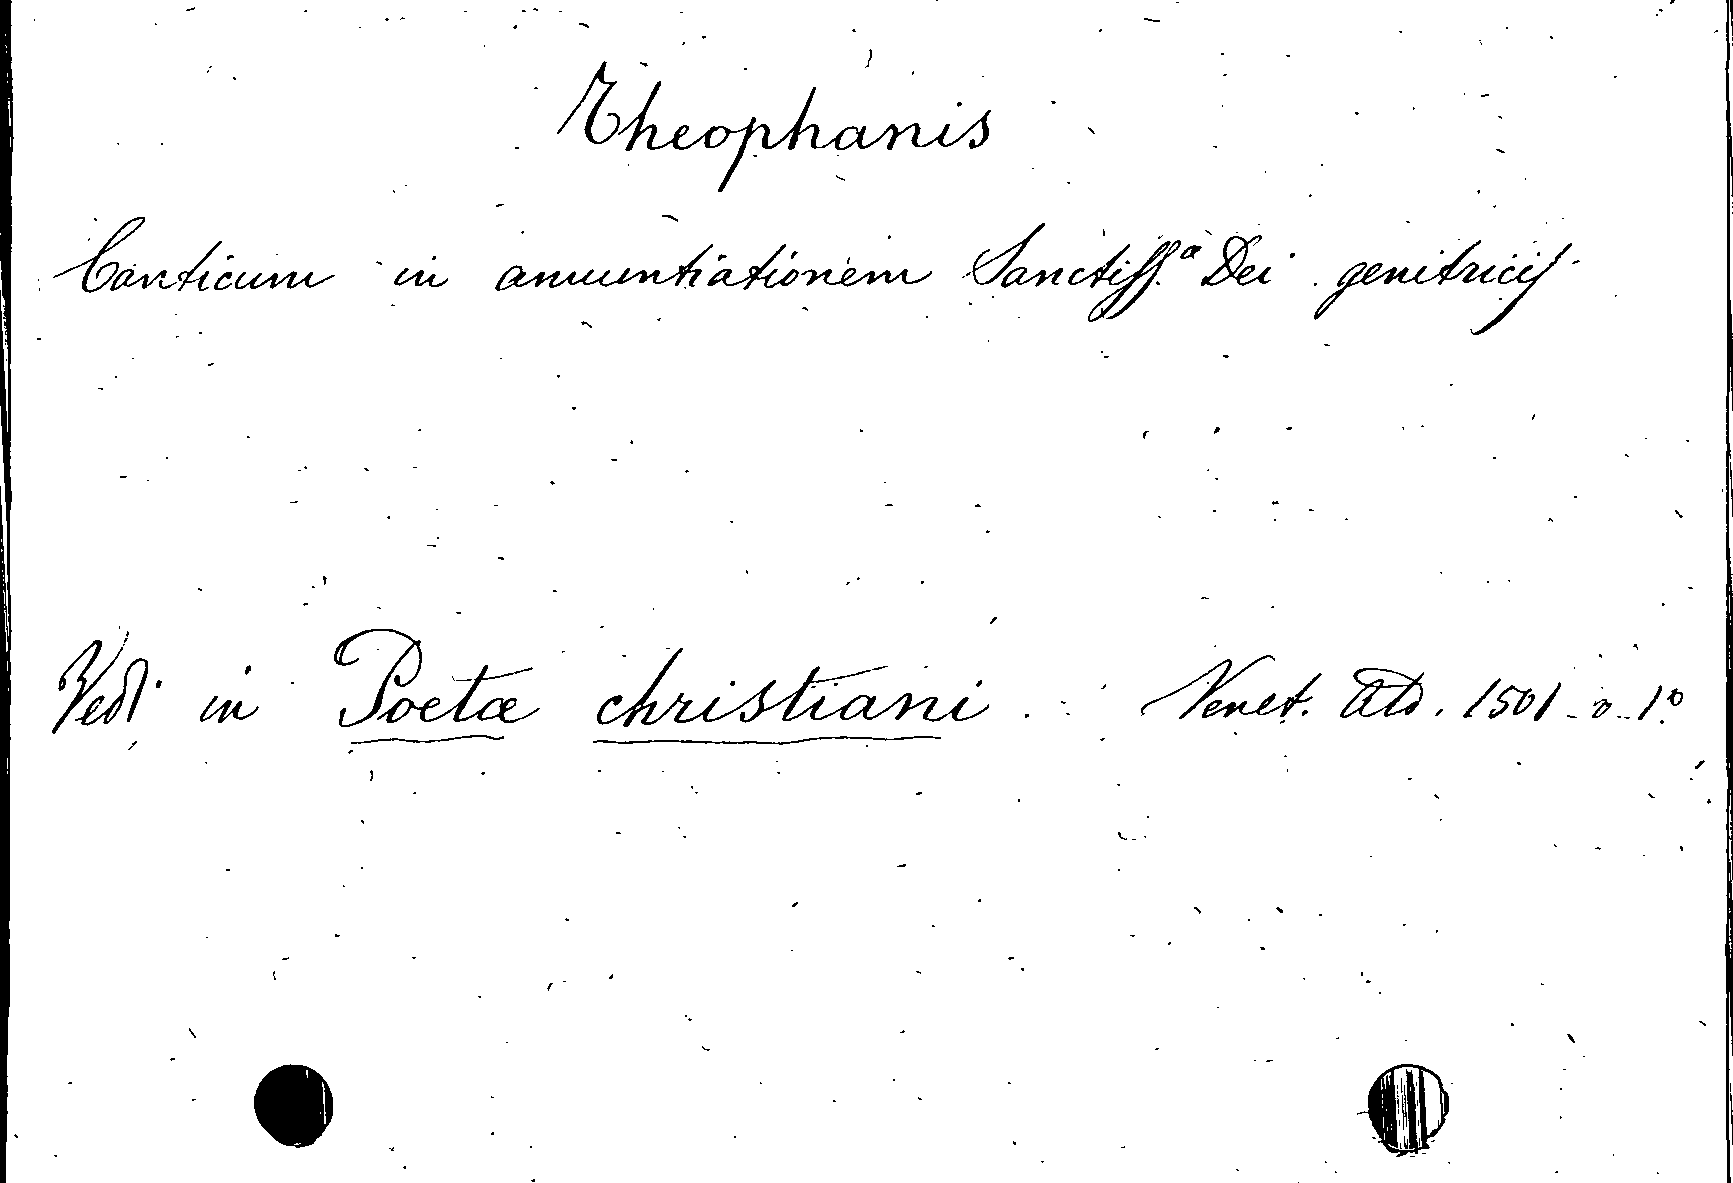 Theophanis
Canticum in annuntiationem Sanctiss.ª Dei genitricis
Vedi in Poetæ christiani. Venet. Ald. 1501 - v. 1º